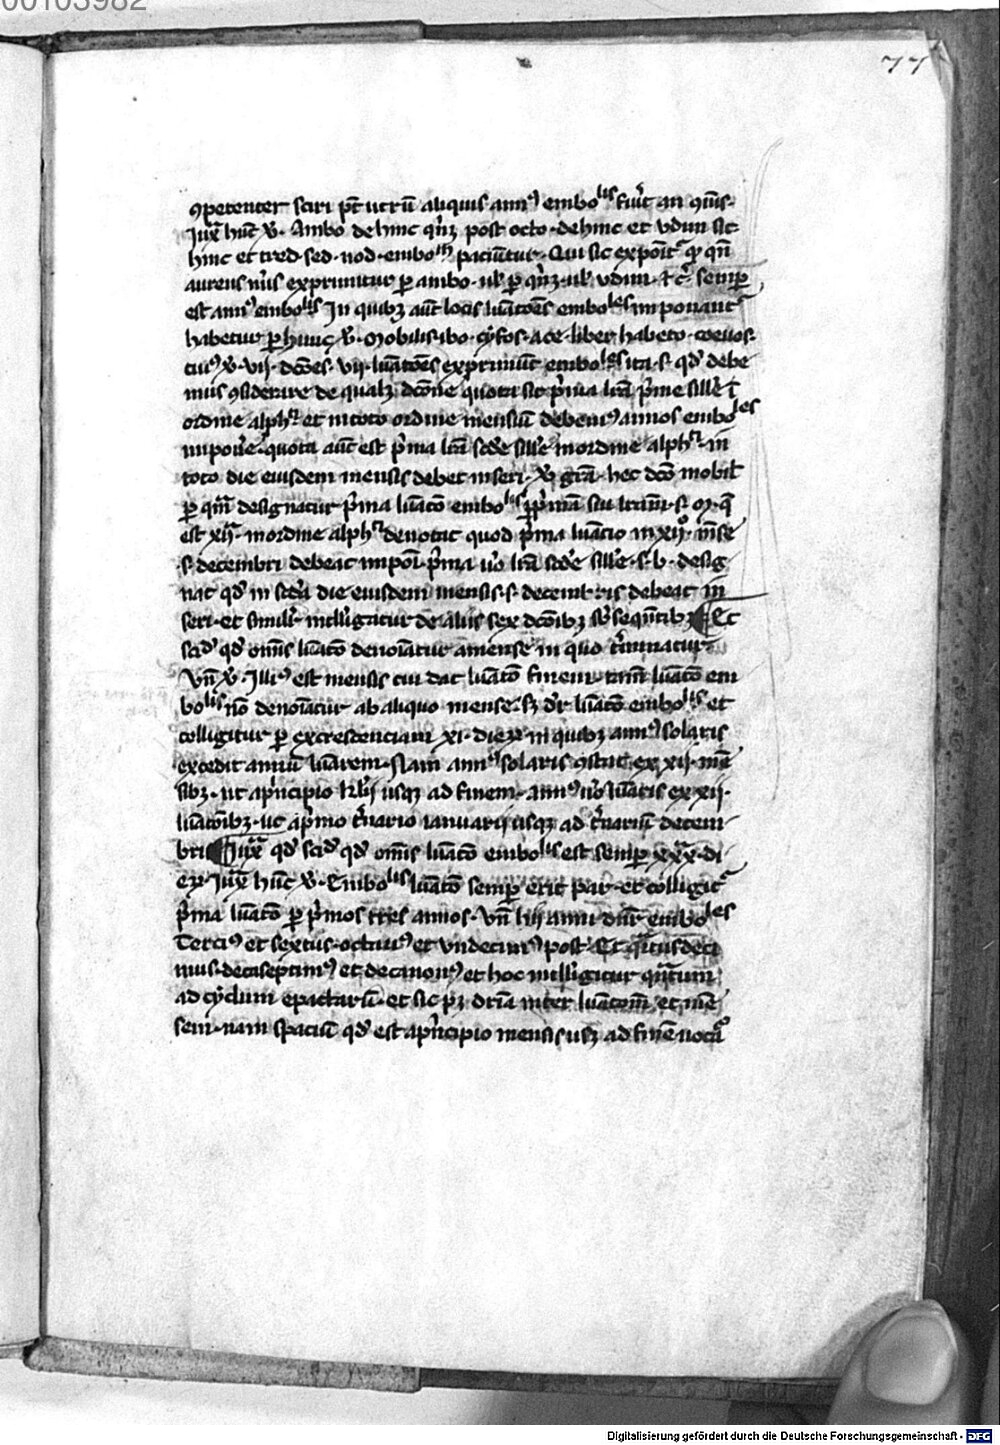 00103982
77
ꝯpetenter sciri pt̄ utrū aliquis annꝰ embolis fuit̄ an ꝯmīs·
Iux̄ hūc v̄· Ambo dehinc qn̄z post octo· dehinc et vdun sic·
hinc et tred· sed· nod· embo paciūtur· Qui sic exponit̄ qn̄
aureus nūs exprimitur p̲ ambo· ul̄ p̲ qn̄z· ul̄ vdun· semp̲
est annꝰ embolis In quibꝫ aūt locis lūatōes emboles imponant᷑
habetur p̲ hunc v̄· Mobilis· ibo· cyfos· ace· liber habeto· coeuos·
cuiꝰ v̄· vij· dcōes· vij· lūatōes exprimūt emboles ita· s· qd̄ debe
mus ꝯsiderare de qualꝫ dcōne quota sit p̄ma lrā p̄me sill̄e ī
ordine alphī et in toto ordine mensiū debemꝰ annos emboles
imponē· quota aūt est p̄ma lrā scd̄e sill̄e in ordine alphī in
toto die eiusdem mensis debet inseri· v̄ grā· hec dcō mobil̄
p̲ qm̄ designatur p̄ma lūatō embolis p̲ p̄mam suu lr̄am· s· m· q̄
est xij· in ordine alphī denotat quod p̄ma lūacio in xijº· mēse
·s· decembri debeat impōi· p̄ma u̇o lrā scd̄e sill̄e· s· b· desig
nat qd̄ in scd̄a die eiusdem mensis· s· decembris debeat in
seri· et simil̄r intelligatur de aliis sex dcōibꝫ sb̄sequētibꝫ ¶ Et
scid̄ qd̄ omīs lūatō denoīatur amense in quo t̄minatur
Vn̄ v̄· Illiꝰ est mensis cui dat lūatō finem· tam̄ lūatō em
bolis nō denoīatur ab aliquo mense· sꝫ dr̄ lūatō embolis et
colligitur p̲ excrescenciam xi· dieꝝ in quibꝫ annꝰ solaris
excedit annū lūarem· Nam annꝰ solaris ꝯstat ex xij· mē
sibꝫ· ut ap̄ncipio usqꝫ ad finem· annꝰ u̇o lūaris ex xij·
lūatōibꝫ· ut ap̄mo t̄nario ianuarij usqꝫ ad t̄nariū decem-
bris ¶ Iux̄ qd̄ scid̄ qd̄ omīs lūatō embolis est semp̲ xxx· di
eꝝ· Iux̄ hūc v̄· Embolis lūatō semp̲ erit par· et colligit᷑
p̄ma lūatō p̲ p̄mos tres annos· vn̄ hij anni dn̄r emboles
Terciꝰ et sextus· octauꝰ et vndecimꝰ post· Et qͣrtusdeci
mus· deciseptimꝰ et decanonꝰ et hoc intelligitur qn̄tum
ad cyclum epactarū· et sic pꝫ driā inter lūatom̄ et mē
sem· nam spaciū qd̄ est ap̄ncipio mensis usqꝫ ad finē uocat᷑
Digitalisierung gefördert durch die Deutsche Forschungsgemeinschaft - DFG